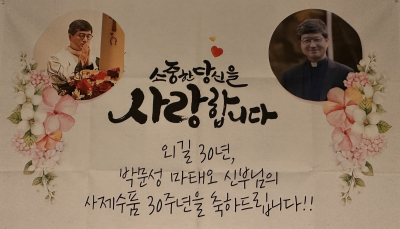 소중한 당신을
사랑합니다
외길 30년,
박문성 마태오 신부님의
사제수품 30주년을 축하드립니다!!